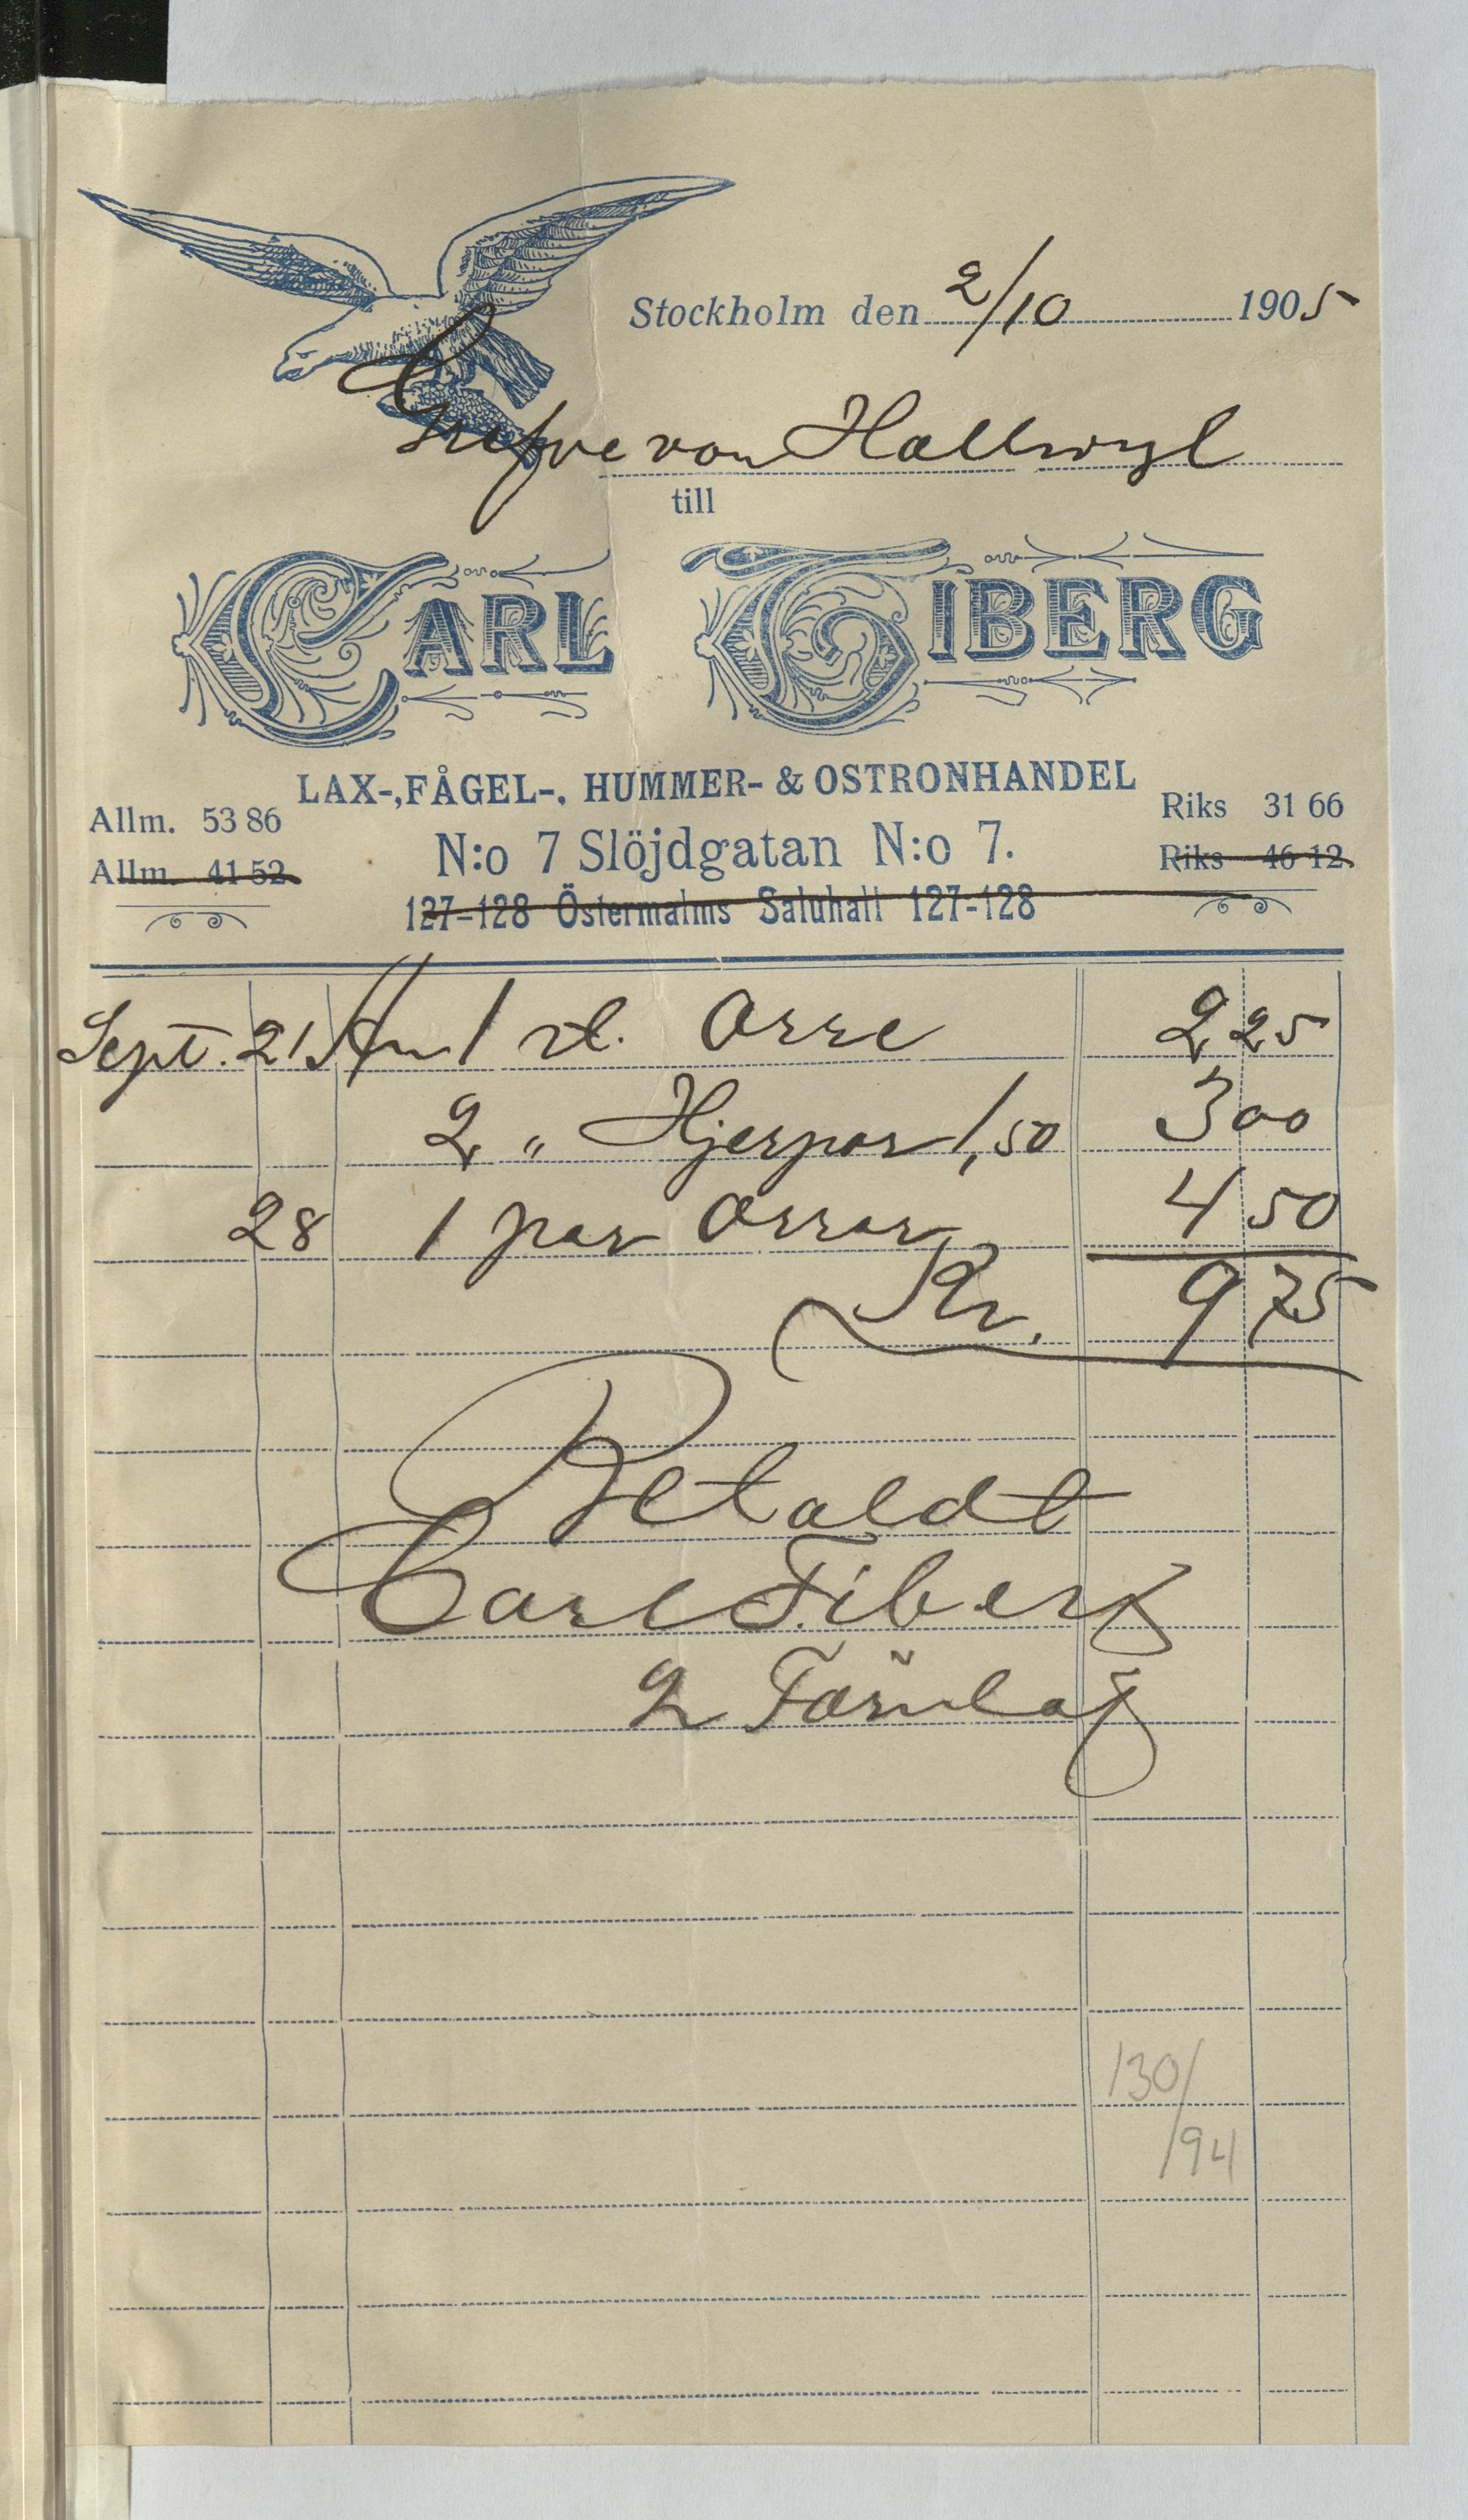 Stockholm den 2/10 1905
Grefve von Hallwyl
till
CARL TIBERG
LAX-, FÅGEL-, HUMMER- & OSTRONHANDEL
Allm. 53 86
Riks 31 66
N:o 7 Slöjdgatan N:o 7.
Allm. 41 52
Riks 46 12
127-128 Östermalms Saluhall 127-128
Sept. 21 An 1 st. Orre 2 25
2 " Hjerpar 1,50 3 00
28 1 par Orrar 4 50
Kr. 9 75
Betaldt
Carl Tiberg
130/
/94